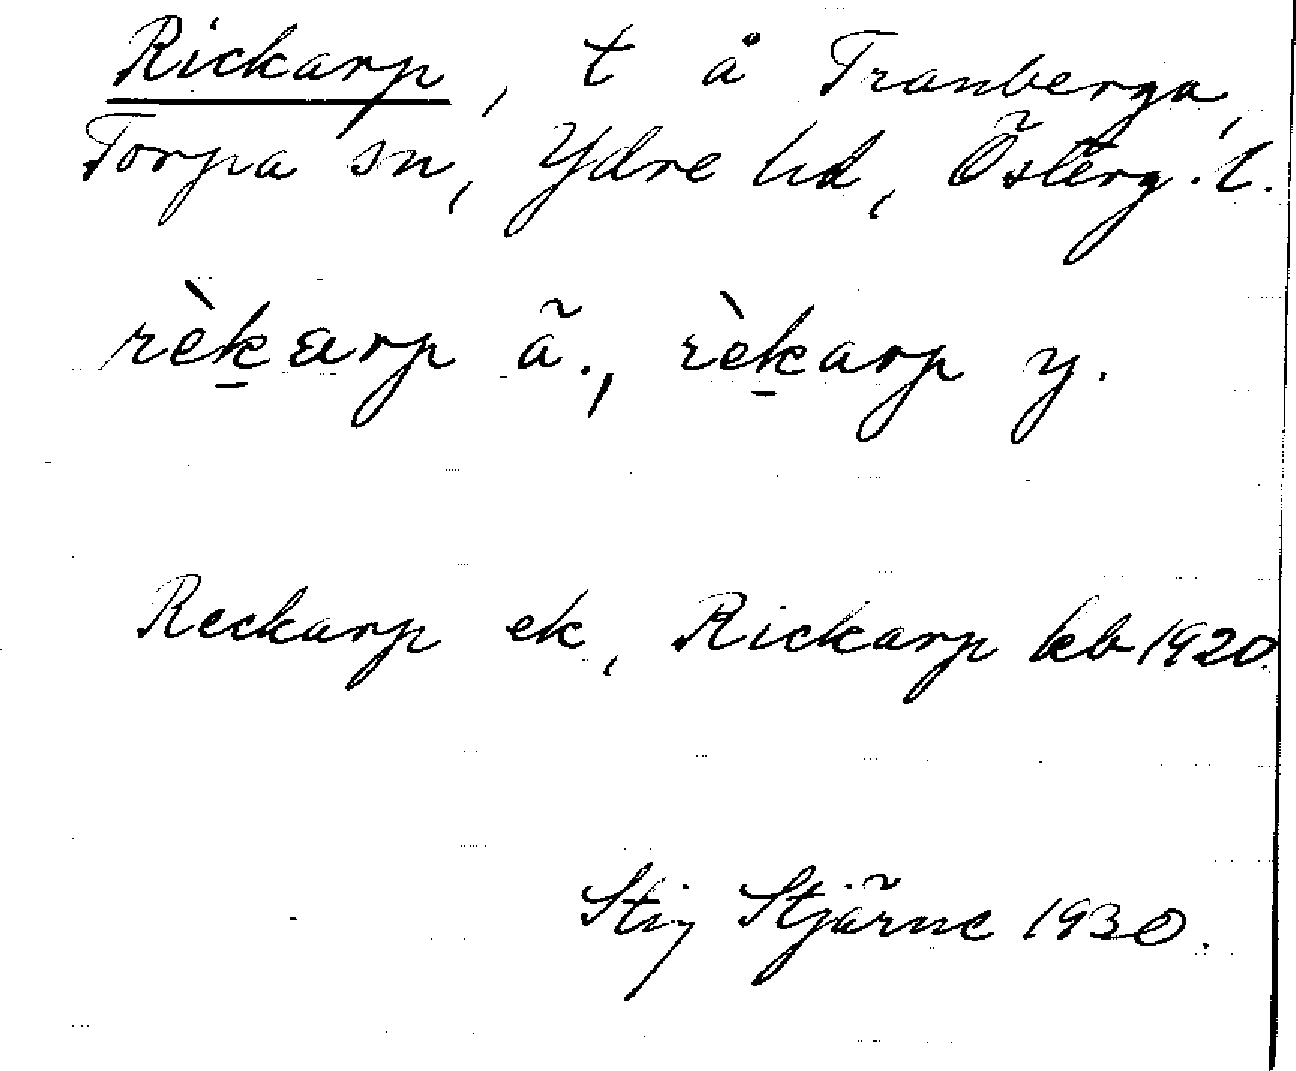 Rickarp, t å Tranberga,
Torpa sn, Ydre hd, Österg. l.
rèk̲arp ä., rèk̲arp y.
Reckarp ek, Rickarp kb 1920.
Stig Stjärne 1930.